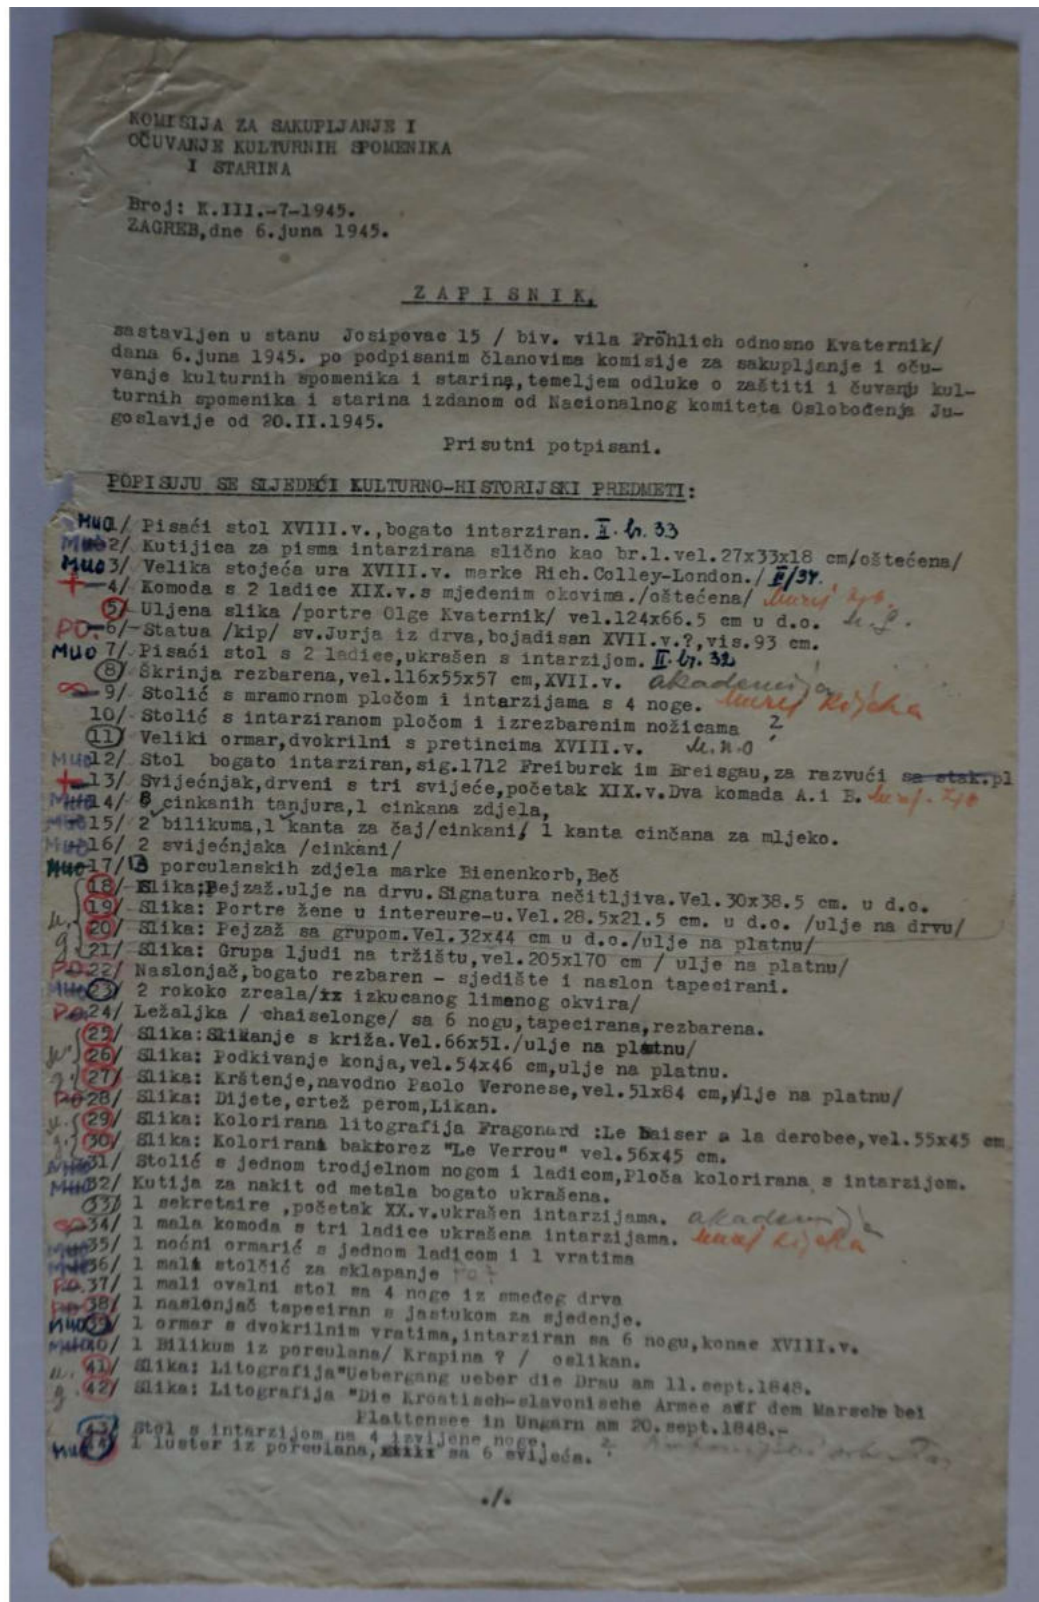 KOMISIJA ZA SAKUPLJANJE I
OČUVANJE KULTURNIH SPOMENIKA
I STARINA
Broj: K.III.-7-1945.
ZAGREB,dne 6.juna 1945.
ZAPISNIK
sastavljen u stanu Josipovac 15 / biv. vila Fröhlich odnosno Kvaternik/
dana 6.juna 1945. po podpisanim članovima komisije za sakupljanje i oču-
vanje kulturnih spomenika i starina,temeljem odluke o zaštiti i čuvanju kul-
turnih spomenika i starina izdanom od Nacionalnog komiteta Oslobođenja Ju-
goslavije od 20.II.1945.
Prisutni potpisani.
POPISUJU SE SLJEDEĆI KULTURNO-HISTORIJSKI PREDMETI:
MUO 1/ Pisaći stol XVIII.v.,bogato intarziran. II. br. 33
MUO 2/ Kutijica za pisma intarzirana slično kao br.1.vel.27x33x18 cm/oštećena/
MUO 3/ Velika stojeća ura XVIII.v. marke Rich.Colley-London./ II/34.
+ 4/ Komoda s 2 ladice XIX.v.s mjedenim okovima./oštećena/
5/ Uljena slika /portre Olge Kvaternik/ vel.124x66.5 cm u d.o. M.g.
PO. 6/ Statua /kip/ sv.Jurja iz drva,bojadisan XVII.v.?,vis.93 cm.
MUO 7/ Pisaći stol s 2 ladice,ukrašen s intarzijom. II. br. 32
8/ Škrinja rezbarena,vel.116x55x57 cm,XVII.v. akademija
9/ Stolić s mramornom pločom i intarzijama s 4 noge. Muzej Rijeka
10/ Stolić s intarziranom pločom i izrezbarenim nožicama ?
11/ Veliki ormar,dvokrilni s pretincima XVIII.v. M.n.o
MUO 12/ Stol bogato intarziran,sig.1712 Freiburck im Breisgau,za razvući sa stak.pl
+ 13/ Svijećnjak,drveni s tri svijeće,početak XIX.v.Dva komada A.i B.
MUO 14/ 8 cinkanih tanjura,1 cinkana zdjela,
MUO 15/ 2 bilikuma,1 kanta za čaj/cinkani/ 1 kanta cinčana za mljeko.
MUO 16/ 2 svijećnjaka /cinkani/
MUO 17/ 13 porculanskih zdjela marke Bienenkorb,Beč
18/ Slika:Pejzaž.ulje na drvu.Signatura nečitljiva.Vel.30x38.5 cm. u d.o.
19/ Slika: Portre žene u intereure-u.Vel.28.5x21.5 cm. u d.o. /ulje na drvu/
M. g. 20/ Slika: Pejzaž sa grupom.Vel.32x44 cm u d.o./ulje na platnu/
21/ Slika: Grupa ljudi na tržištu,vel.205x170 cm / ulje na platnu/
PO. 22/ Naslonjač,bogato rezbaren - sjedište i naslon tapecirani.
MUO 23/ 2 rokoko zrcala/iz izkucanog limenog okvira/
Po. 24/ Ležaljka / chaiselonge/ sa 6 nogu,tapecirana,rezbarena.
25/ Slika:Skikanje s križa.Vel.66x51./ulje na platnu/
M. g. 26/ Slika: Podkivanje konja,vel.54x46 cm,ulje na platnu.
27/ Slika: Krštenje,navodno Paolo Veronese,vel.51x84 cm,ulje na platnu/
PO 28/ Slika: Dijete,crtež perom,Likan.
M. 29/ Slika: Kolorirana litografija Fragonard :Le Baiser a la derobee,vel.55x45 cm
g. 30/ Slika: Kolorirana baktorez "Le Verrou" vel.56x45 cm.
MUO 31/ Stolić s jednom trodjelnom nogom i ladicom,Ploča kolorirana s intarzijom.
MUO 32/ Kutija za nakit od metala bogato ukrašena.
33/ 1 sekretaire ,početak XX.v.ukrašen intarzijama. akademija
34/ 1 mala komoda s tri ladice ukrašena intarzijama. Muzej Rijeka
MUO 35/ 1 noćni ormarić s jednom ladicom i 1 vratima
MUO 36/ 1 mali stolčić za sklapanje
PO. 37/ 1 mali ovalni stol sa 4 noge iz smeđeg drva
PO 38/ 1 naslonjač tapeciran s jastukom za sjedenje.
MUO 39/ 1 ormar s dvokrilnim vratima,intarziran sa 6 nogu,konac XVIII.v.
MUO 40/ 1 Bilikum iz porculana/ Krapina ? / oslikan.
M. 41/ Slika: Litografija"Uebergang ueber die Drau am 11.sept.1848.
g. 42/ Slika: Litografija "Die Kroatisch-slavonische Armee auf dem Marsche bei
Plattensee in Ungarn am 20.sept.1848.-
43/ Stol s intarzijom na 4 izvijene noge. ?
MUO 44/ 1 luster iz porculana, sa 6 svijeća.
./.